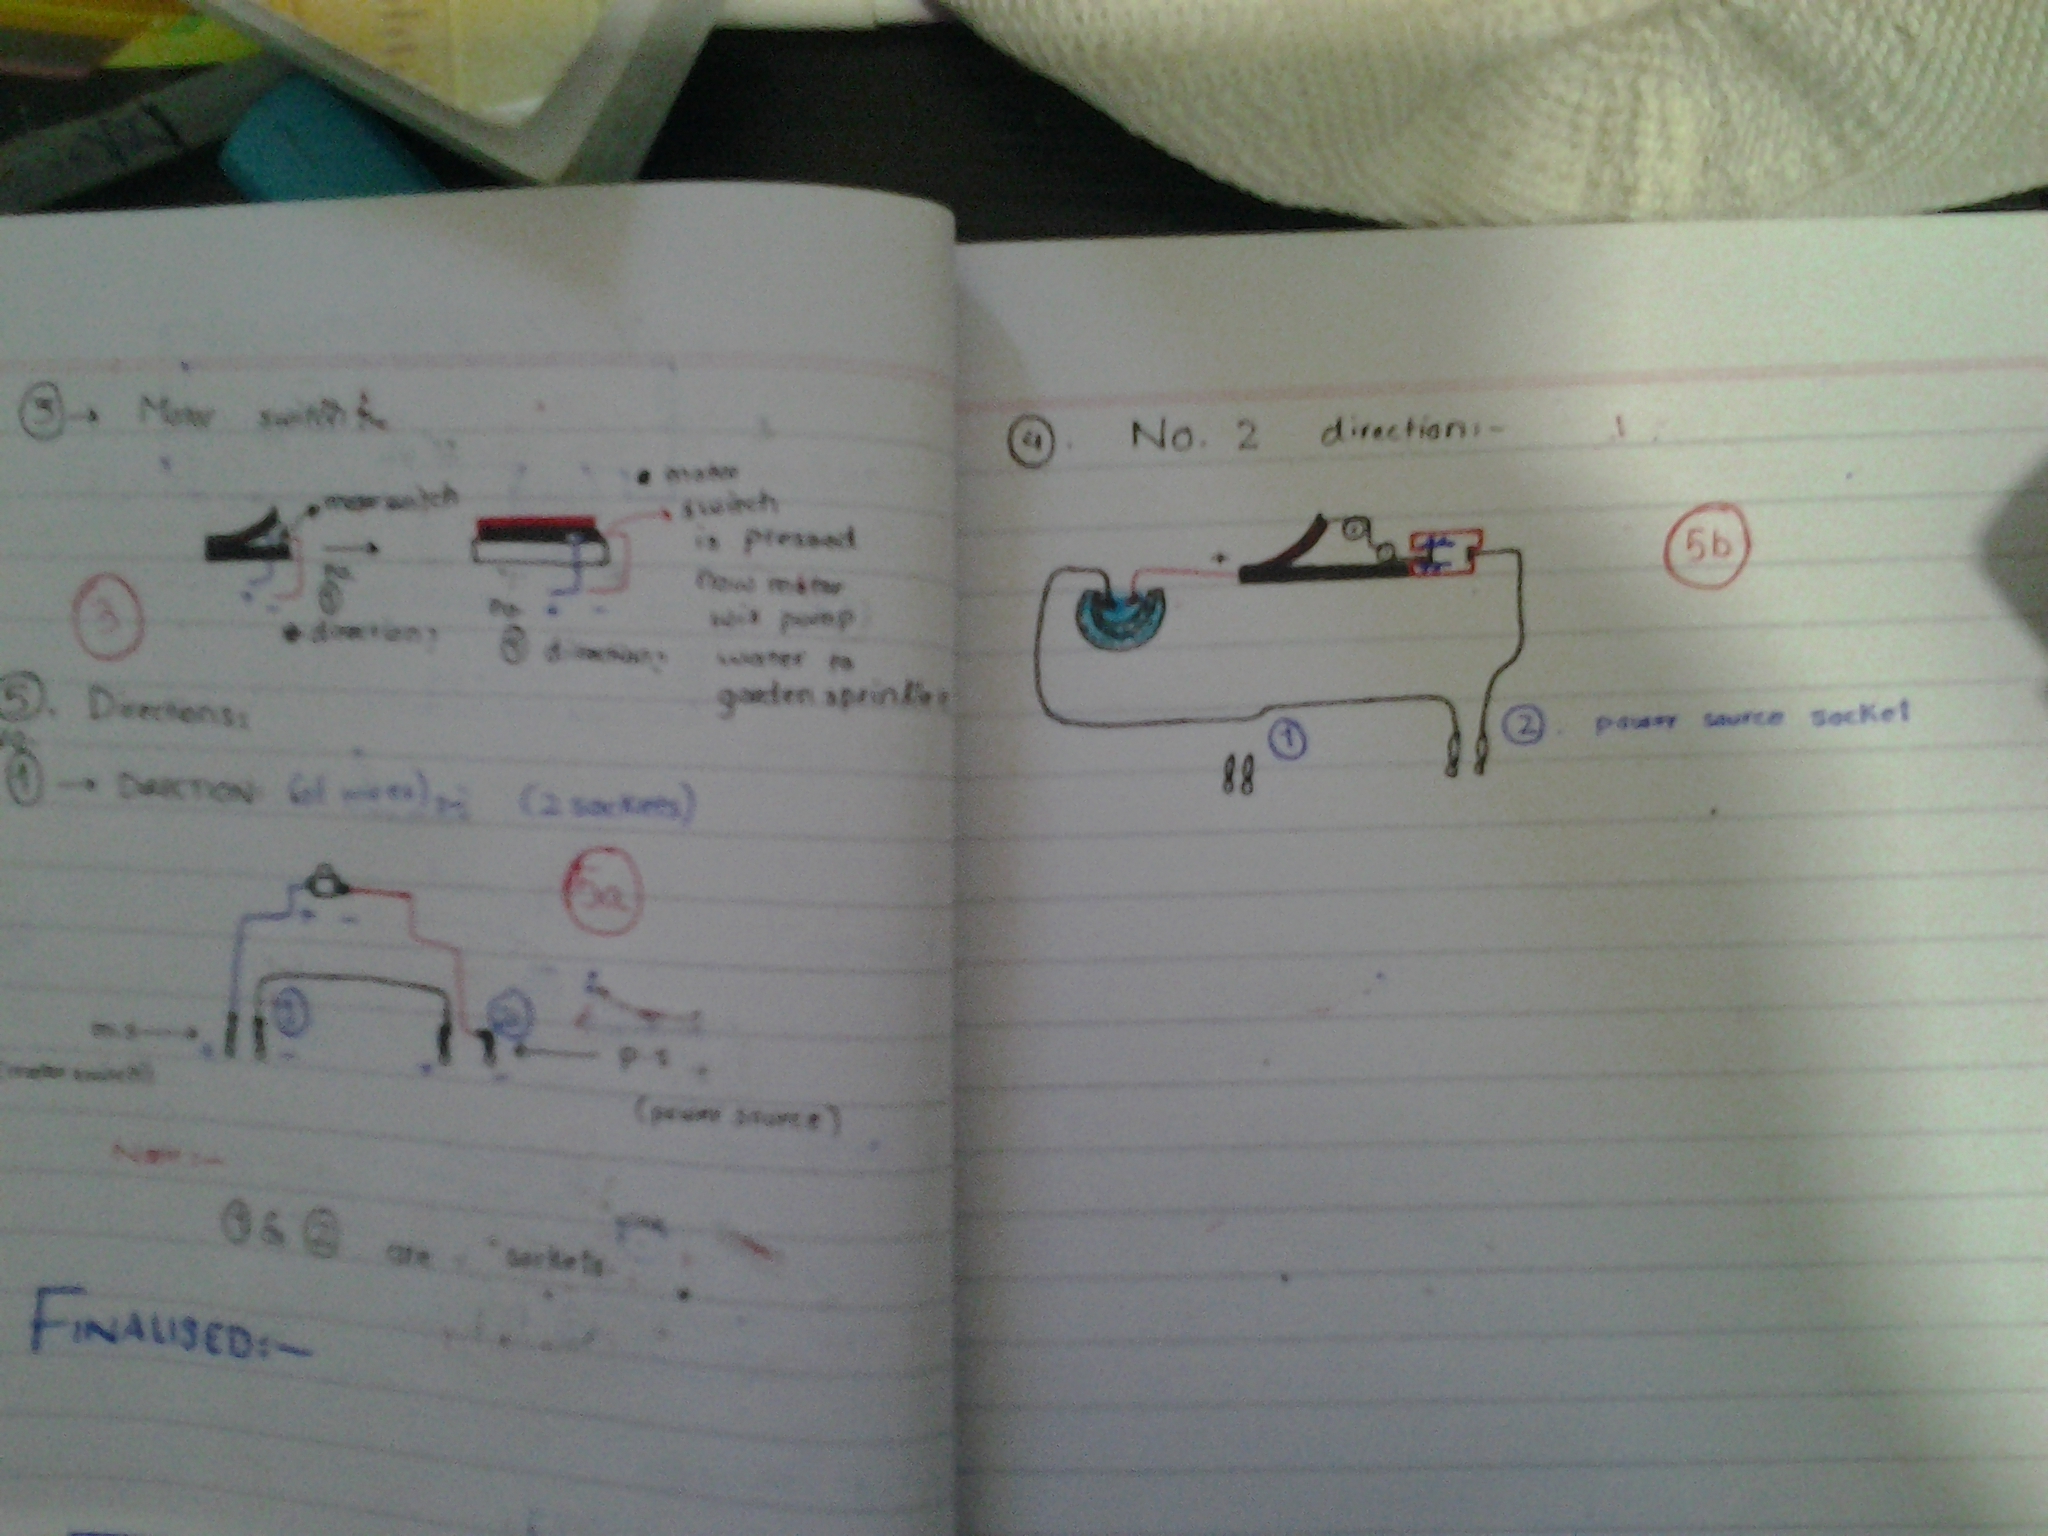 ③ → Motor switch:-
motor switch
• motor
switch
is pressed
now motor
will pump
water to
garden sprinkler
+ -
direction:
+ -
direction:
3
⑤. Directions:
① → DIRECTION (of wires):- (2 sockets)
5a
+ -
① ②
m.s →
(motor switch)
+ - + -
← p.s
(power source)
Now:-
① & ② are sockets
FINALISED:-
④. No. 2 direction:-
5b
+
① ②. power source socket